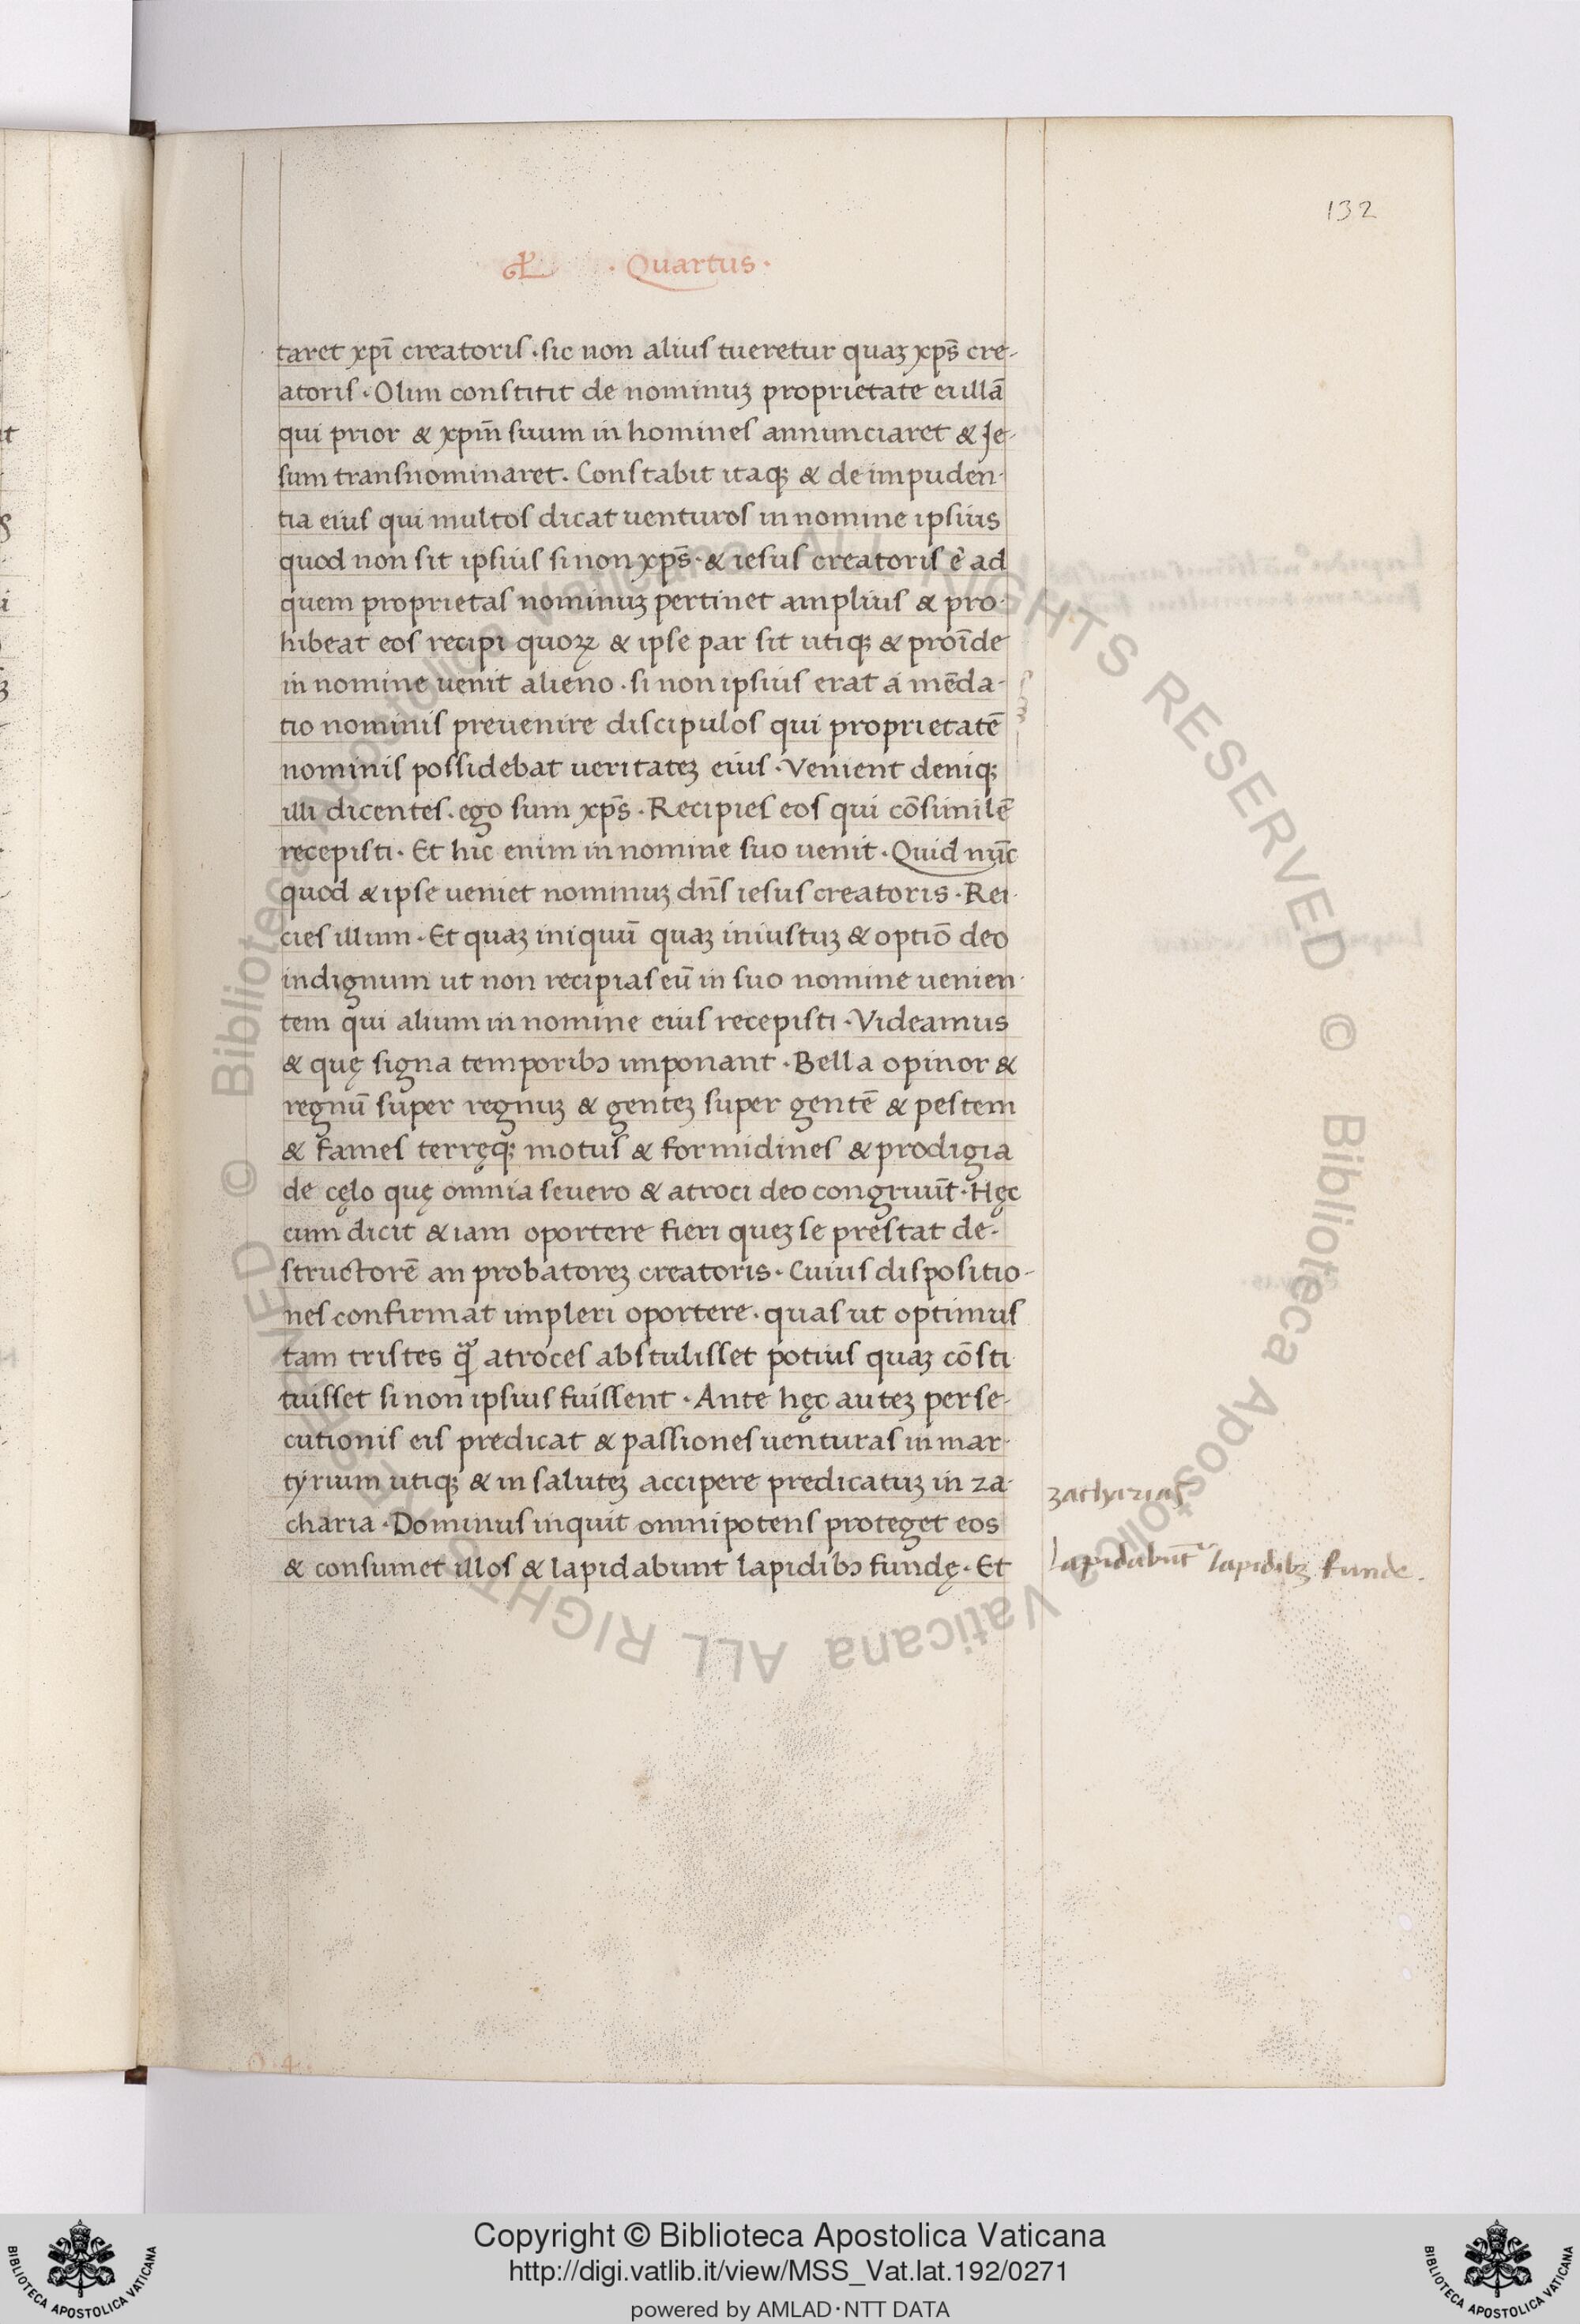 132
· Quartus ·
taret xpī creatoris · sic non alius tueretur quaʒ xps̄ cre-
atoris · Olim constitit de nominuʒ proprietate ei illā
qui prior & xpm̄ suum in homines annunciaret & Je-
sum transnominaret. Constabit itaqꝫ & de impuden-
tia eius qui multos dicat uenturos in nomine ipsius
quod non sit ipsius si non xps̄ · & iesus creatoris ē ad
quem proprietas nominuʒ pertinet amplius & pro-
hibeat eos recipi quoꝝ & ipse par sit utiqꝫ & proīde
in nomine uenit alieno · si non ipsius erat a mēda-
tio nominis preuenire discipulos qui proprietatē
nominis possidebat ueritateʒ eius · Venient deniqꝫ
illi dicentes · ego sum xps̄ · Recipies eos qui cōsimilē
recepisti · Et hic enim in nomine suo uenit · Quid nūc
quod & ipse ueniet nominuʒ dn̄s iesus creatoris · Rei-
cies illum · Et quaʒ iniquū quaʒ iniustuʒ & optīo deo
indignum ut non recipias eū in suo nomine uenien-
tem qui alium in nomine eius recepisti · Videamus
& quę signa temporibꝰ imponant · Bella opinor &
regnū super regnuʒ & genteʒ super gentē & pestem
& fames terręqꝫ motus & formidines & prodigia
de cęlo quę omnia seuero & atroci deo congruūt · Hęc
cum dicit & iam oportere fieri queʒ se prestat de-
structorē an probatoreʒ creatoris · Cuius dispositio-
nes confirmat impleri oportere · quas ut optimus
tam tristes qᷓ atroces abstulisset potius quaʒ cōsti
tuisset si non ipsius fuissent · Ante hęc auteʒ perse-
cutionis eis predicat & passiones uenturas in mar-
tyrium utiqꝫ & in saluteʒ accipere predicatuʒ in za-
charia · Dominus inquit omnipotens proteget eos
& consumet illos & lapidabunt lapidibꝰ fundę · Et
zacharias
lapidabūt lapidibꝫ funde.
Copyright © Biblioteca Apostolica Vaticana
http://digi.vatlib.it/view/MSS_Vat.lat.192/0271
powered by AMLAD · NTT DATA
BIBLIOTECA APOSTOLICA VATICANA
BIBLIOTECA APOSTOLICA VATICANA
© Biblioteca Apostolica Vaticana ALL RIGHTS RESERVED © Biblioteca Apostolica Vaticana ALL RIGHTS RESERVED